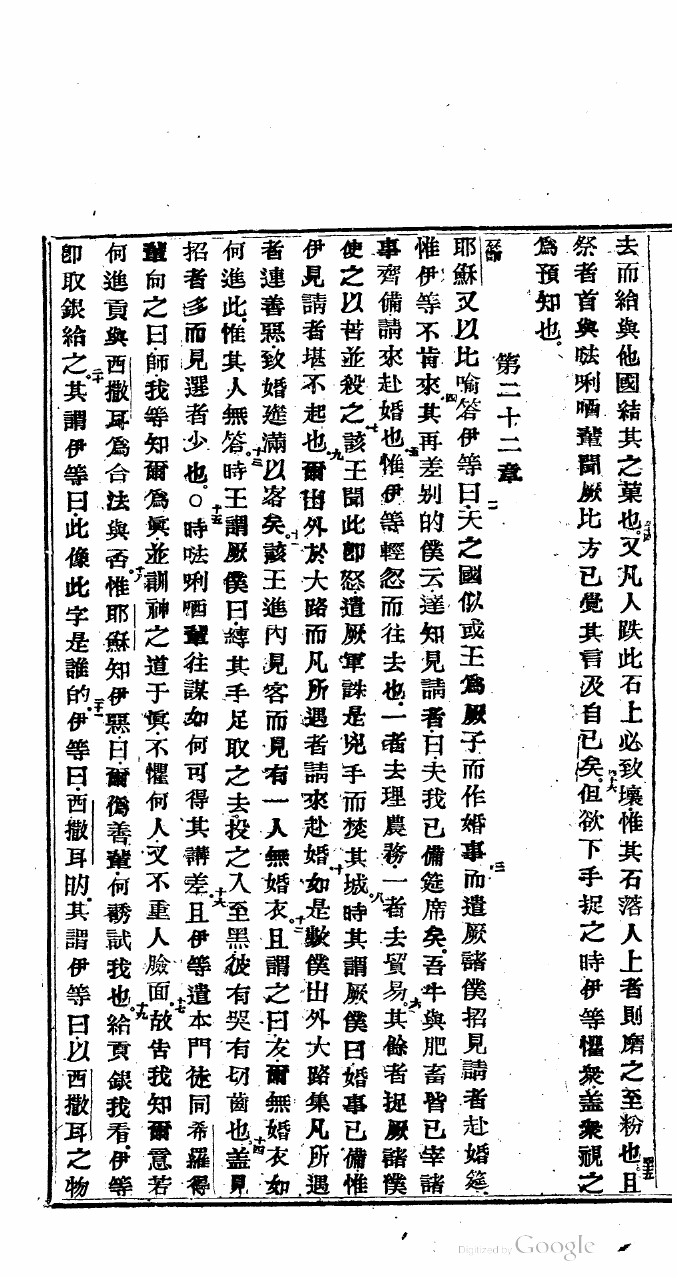 去而給與他國結其之菓也。四十四又凡人跌此石上必致壞惟其石落人上者則磨之至粉也。四十五且
祭者首與𠵽唎哂輩聞厥比方已覺其言及自已矣。四十六但欲下手捉之時伊等懼衆蓋衆視之
爲預知也。
第二十二章
耶穌又以比喻答伊等曰二天之國似或王爲厥子而作婚事三而遣厥諸僕招見請者赴婚筵
惟伊等不肯來四其再差别的僕云達知見請者曰夫我已備筵席矣吾牛與肥畜皆已宰諸
事齊備請來赴婚也五惟伊等輕忽而往去也一者去理農務一者去貿易六其餘者捉厥諸僕
使之以苦並殺之七該王聞此卽怒遣厥軍誅是兇手而焚其城八時其謂厥僕曰婚事已備惟
伊見請者堪不起也九爾出外於大路而凡所遇者請來赴婚十如是數僕出外大路集凡所遇
者連善惡致婚筵滿以客矣十一該王進內見客而見有一人無婚衣十二且謂之曰友爾無婚衣如
何進此惟其人無答十三時王謂厥僕曰縛其手足取之去投之入至黑彼有哭有切齒也十四蓋見
招者多而見選者少也○十五時𠵽唎哂輩往謀如何可得其講差十六且伊等遣本門徒同希羅得
輩向之曰師我等知爾爲眞並訓神之道于眞不懼何人又不重人臉面十七故吿我知爾意若
何進貢與西撒耳爲合法與否十八惟耶穌知伊惡曰爾僞善輩何誘試我也十九給貢銀我看伊等
卽取銀給之二十其謂伊等曰此像此字是誰的二十一伊等曰西撒耳的其謂伊等曰以西撒耳之物
Digitized by Google